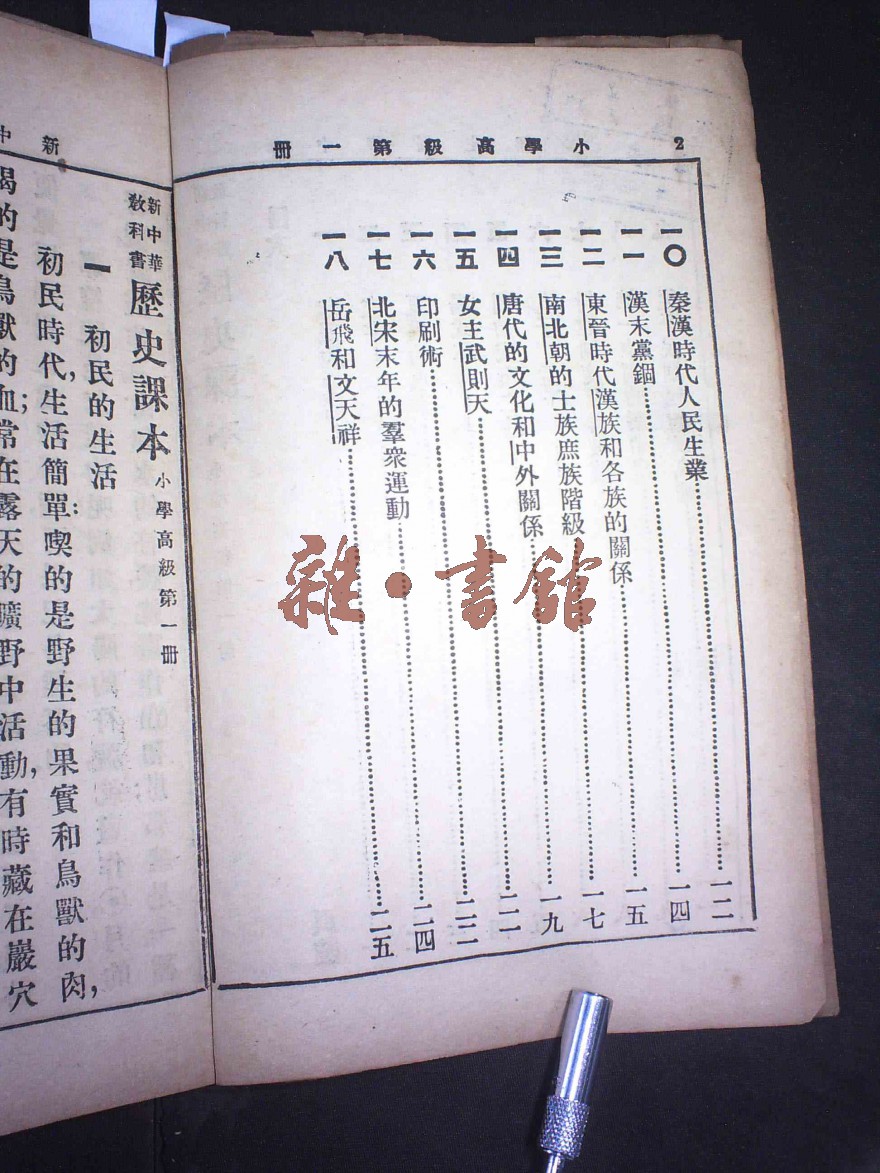 2 小學高級第一冊
一〇 秦漢時代人民生業……一二
一一 漢末黨錮……一四
一二 東晉時代漢族和各族的關係……一五
一三 南北朝的士族庶族階級……一七
一四 唐代的文化和中外關係……一九
一五 女主武則天……二一
一六 印刷術……二二
一七 北宋末年的羣衆運動……二四
一八 岳飛和文天祥……二五
雜·書館
新中
新中華教科書 歷史課本 小學高級第一冊
一 初民的生活
初民時代,生活簡單:喫的是野生的果實和鳥獸的肉,
喝的是鳥獸的血;常在露天的曠野中活動,有時藏在巖穴